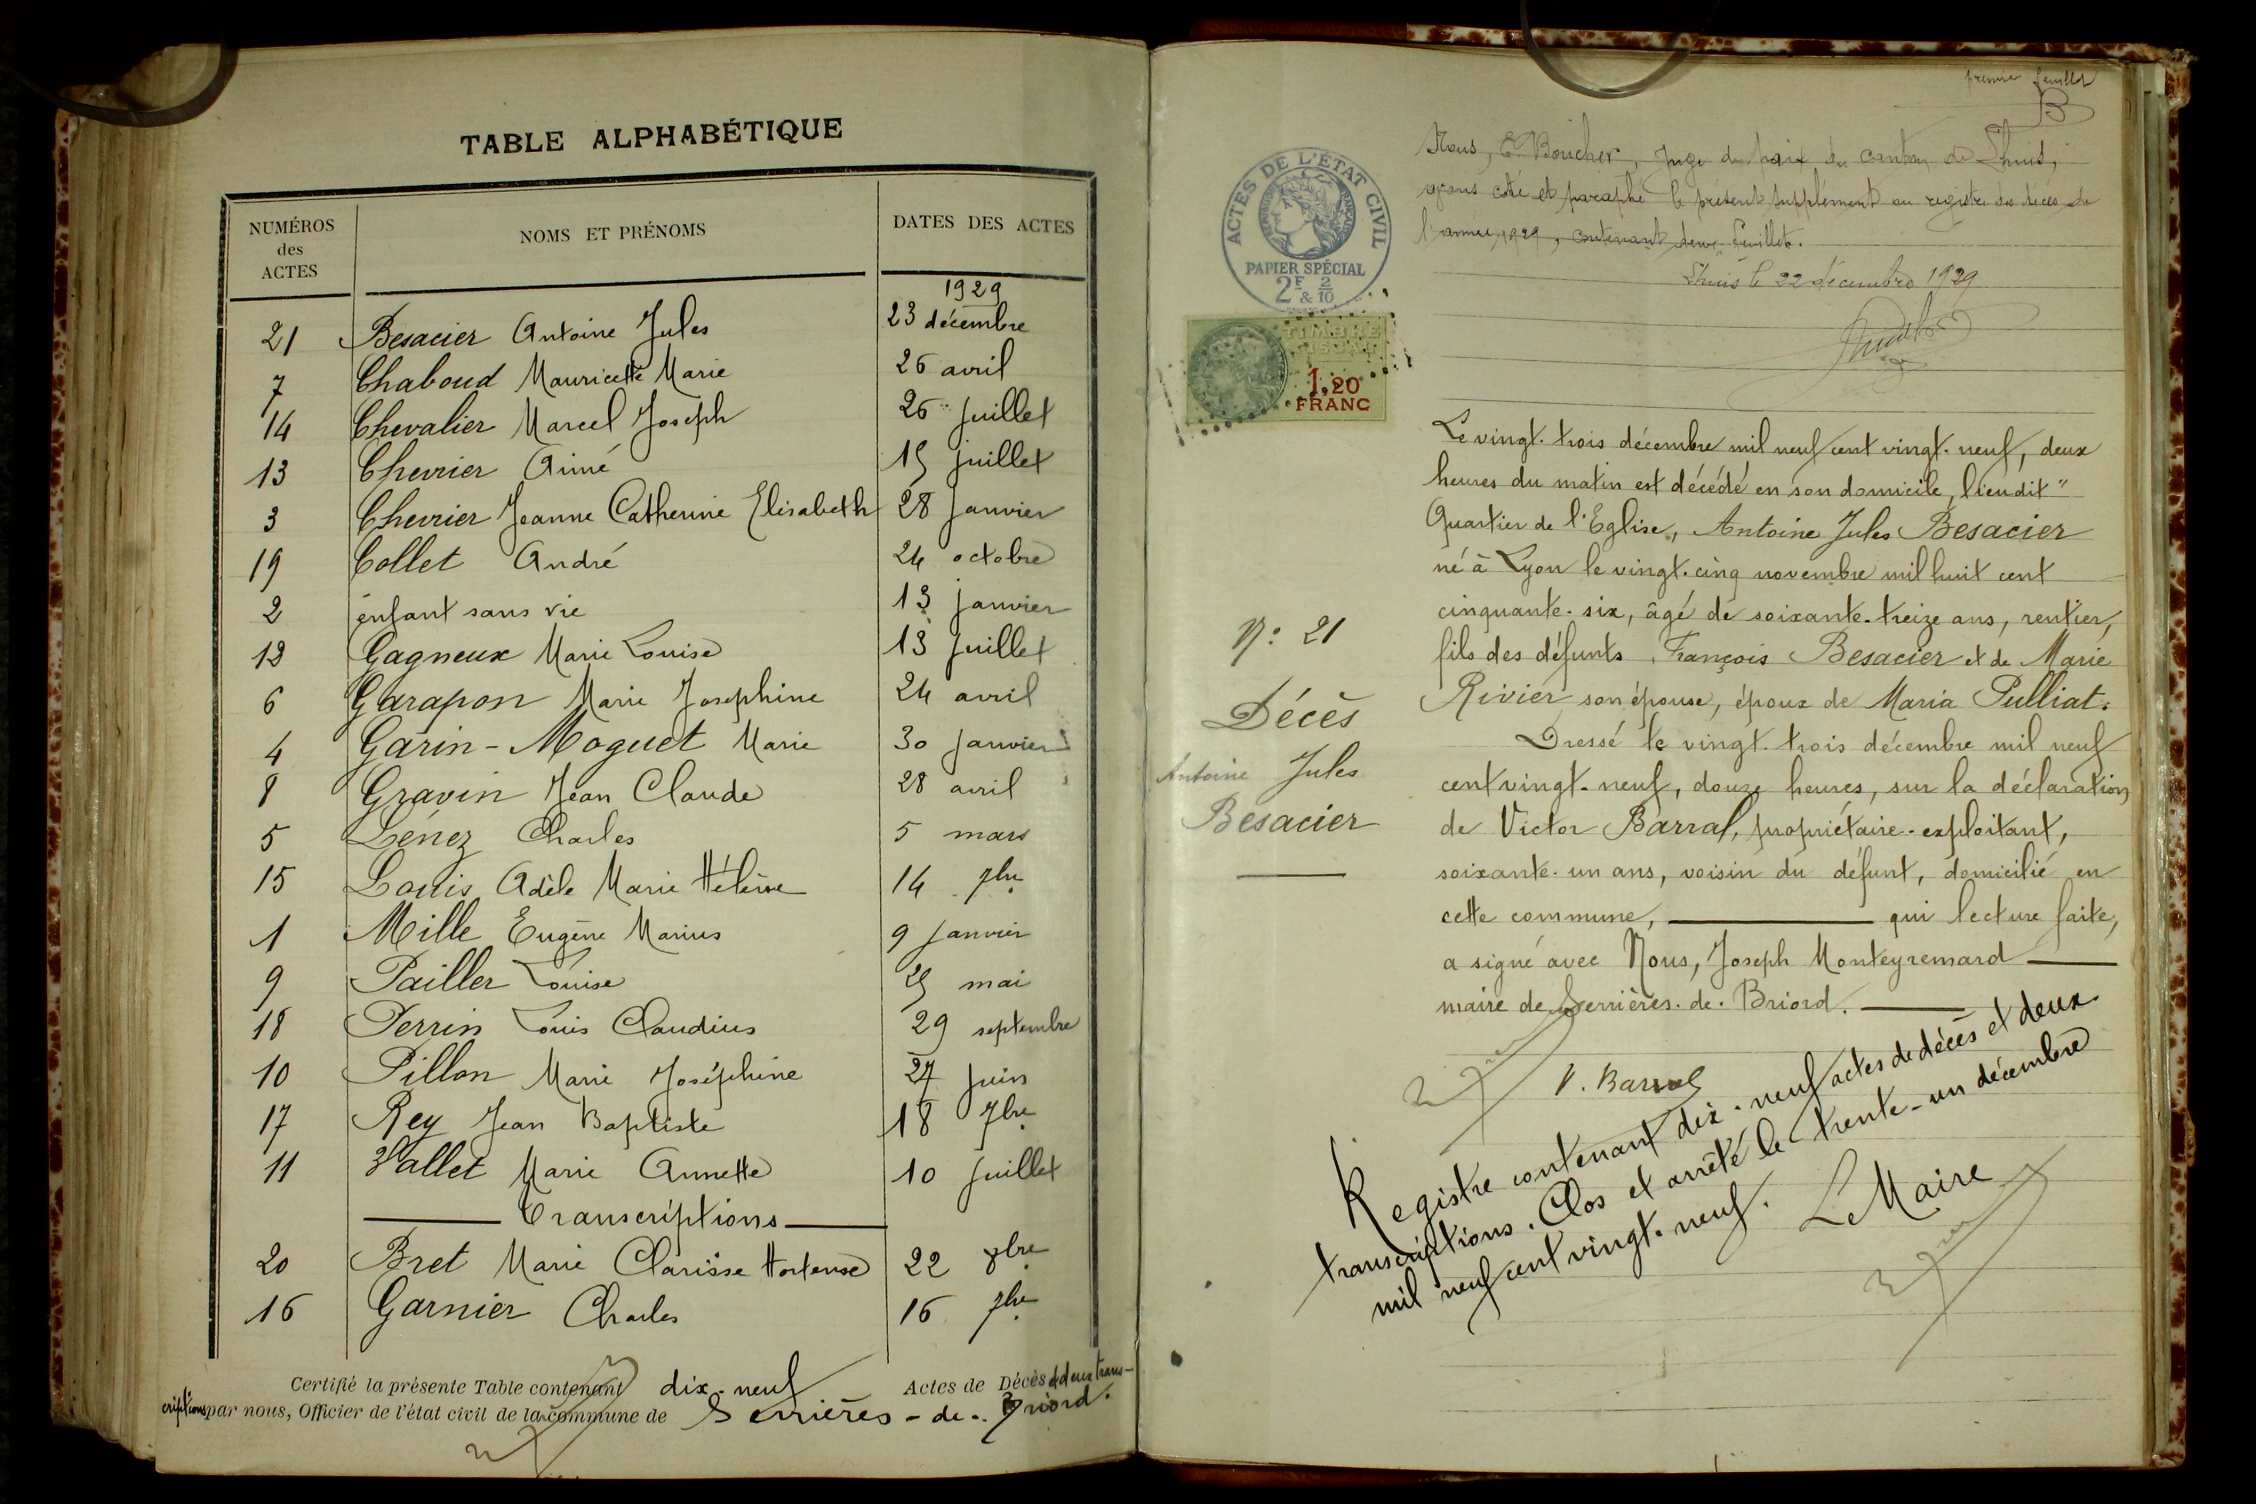 TABLE ALPHABÉTIQUE
NUMÉROS des ACTES NOMS ET PRÉNOMS DATES DES ACTES
1929
21 Besacier Antoine Jules 23 décembre
7 Chaboud Mauricette Marie 26 avril
14 Chevalier Marcel Joseph 26 juillet
13 Chevrier Aimé 15 juillet
3 Chevrier Jeanne Catherine Elisabeth 28 janvier
19 Collet André 24 octobre
2 enfant sans vie 13 janvier
12 Gagneux Marie Louise 13 juillet
6 Garapon Marie Josephine 24 avril
4 Garin-Moguet Marie 30 janvier
8 Gravin Jean Claude 28 avril
5 Lénez Charles 5 mars
15 Louis Adèle Marie Hélène 14 7bre
1 Mille Eugène Marius 9 janvier
9 Pailler Louise mai
18 Perrin Louis Claudius 29 septembre
10 Pillon Marie Joséphine 27 juin
17 Rey Jean Baptiste 18 7bre
11 Vallet Marie Annette 10 juillet
Transcriptions
20 Bret Marie Clarisse Hortense 22 8bre
16 Garnier Charles 16 7bre
Certifié la présente Table contenant dix-neuf Actes de Décès et deux trans-
criptions par nous, Officier de l'état civil de la commune de Serrières-de-Briord.
premier feuillet
B
Nous, E. Boucher, Juge de paix du canton de Lhuis,
avons coté et paraphé le présent supplément au registre des décès de
l'année 1929, contenant deux feuillets.
Lhuis le 22 décembre 1929
ACTES DE L'ÉTAT CIVIL
PAPIER SPÉCIAL
2F & 2/10
TIMBRE
FISCAL
1,20
FRANC
Le vingt-trois décembre mil neuf cent vingt-neuf, deux
heures du matin est décédé en son domicile, lieudit "
Quartier de l'Eglise, Antoine Jules Besacier
né à Lyon le vingt-cinq novembre mil huit cent
cinquante-six, âgé de soixante-treize ans, rentier,
fils des défunts François Besacier et de Marie
Rivier son épouse, époux de Maria Pulliat.
Dressé le vingt-trois décembre mil neuf
cent vingt-neuf, douze heures, sur la déclaration
de Victor Barral, propriétaire-exploitant,
soixante-un ans, voisin du défunt, domicilié en
cette commune, qui lecture faite,
a signé avec Nous, Joseph Monteyremard
maire de Serrières-de-Briord.
N° 21
Décès
Antoine Jules
Besacier
V. Barral
Registre contenant dix-neuf actes de décès et deux
transcriptions. Clos et arrêté le trente-un décembre
mil neuf cent vingt-neuf. Le Maire